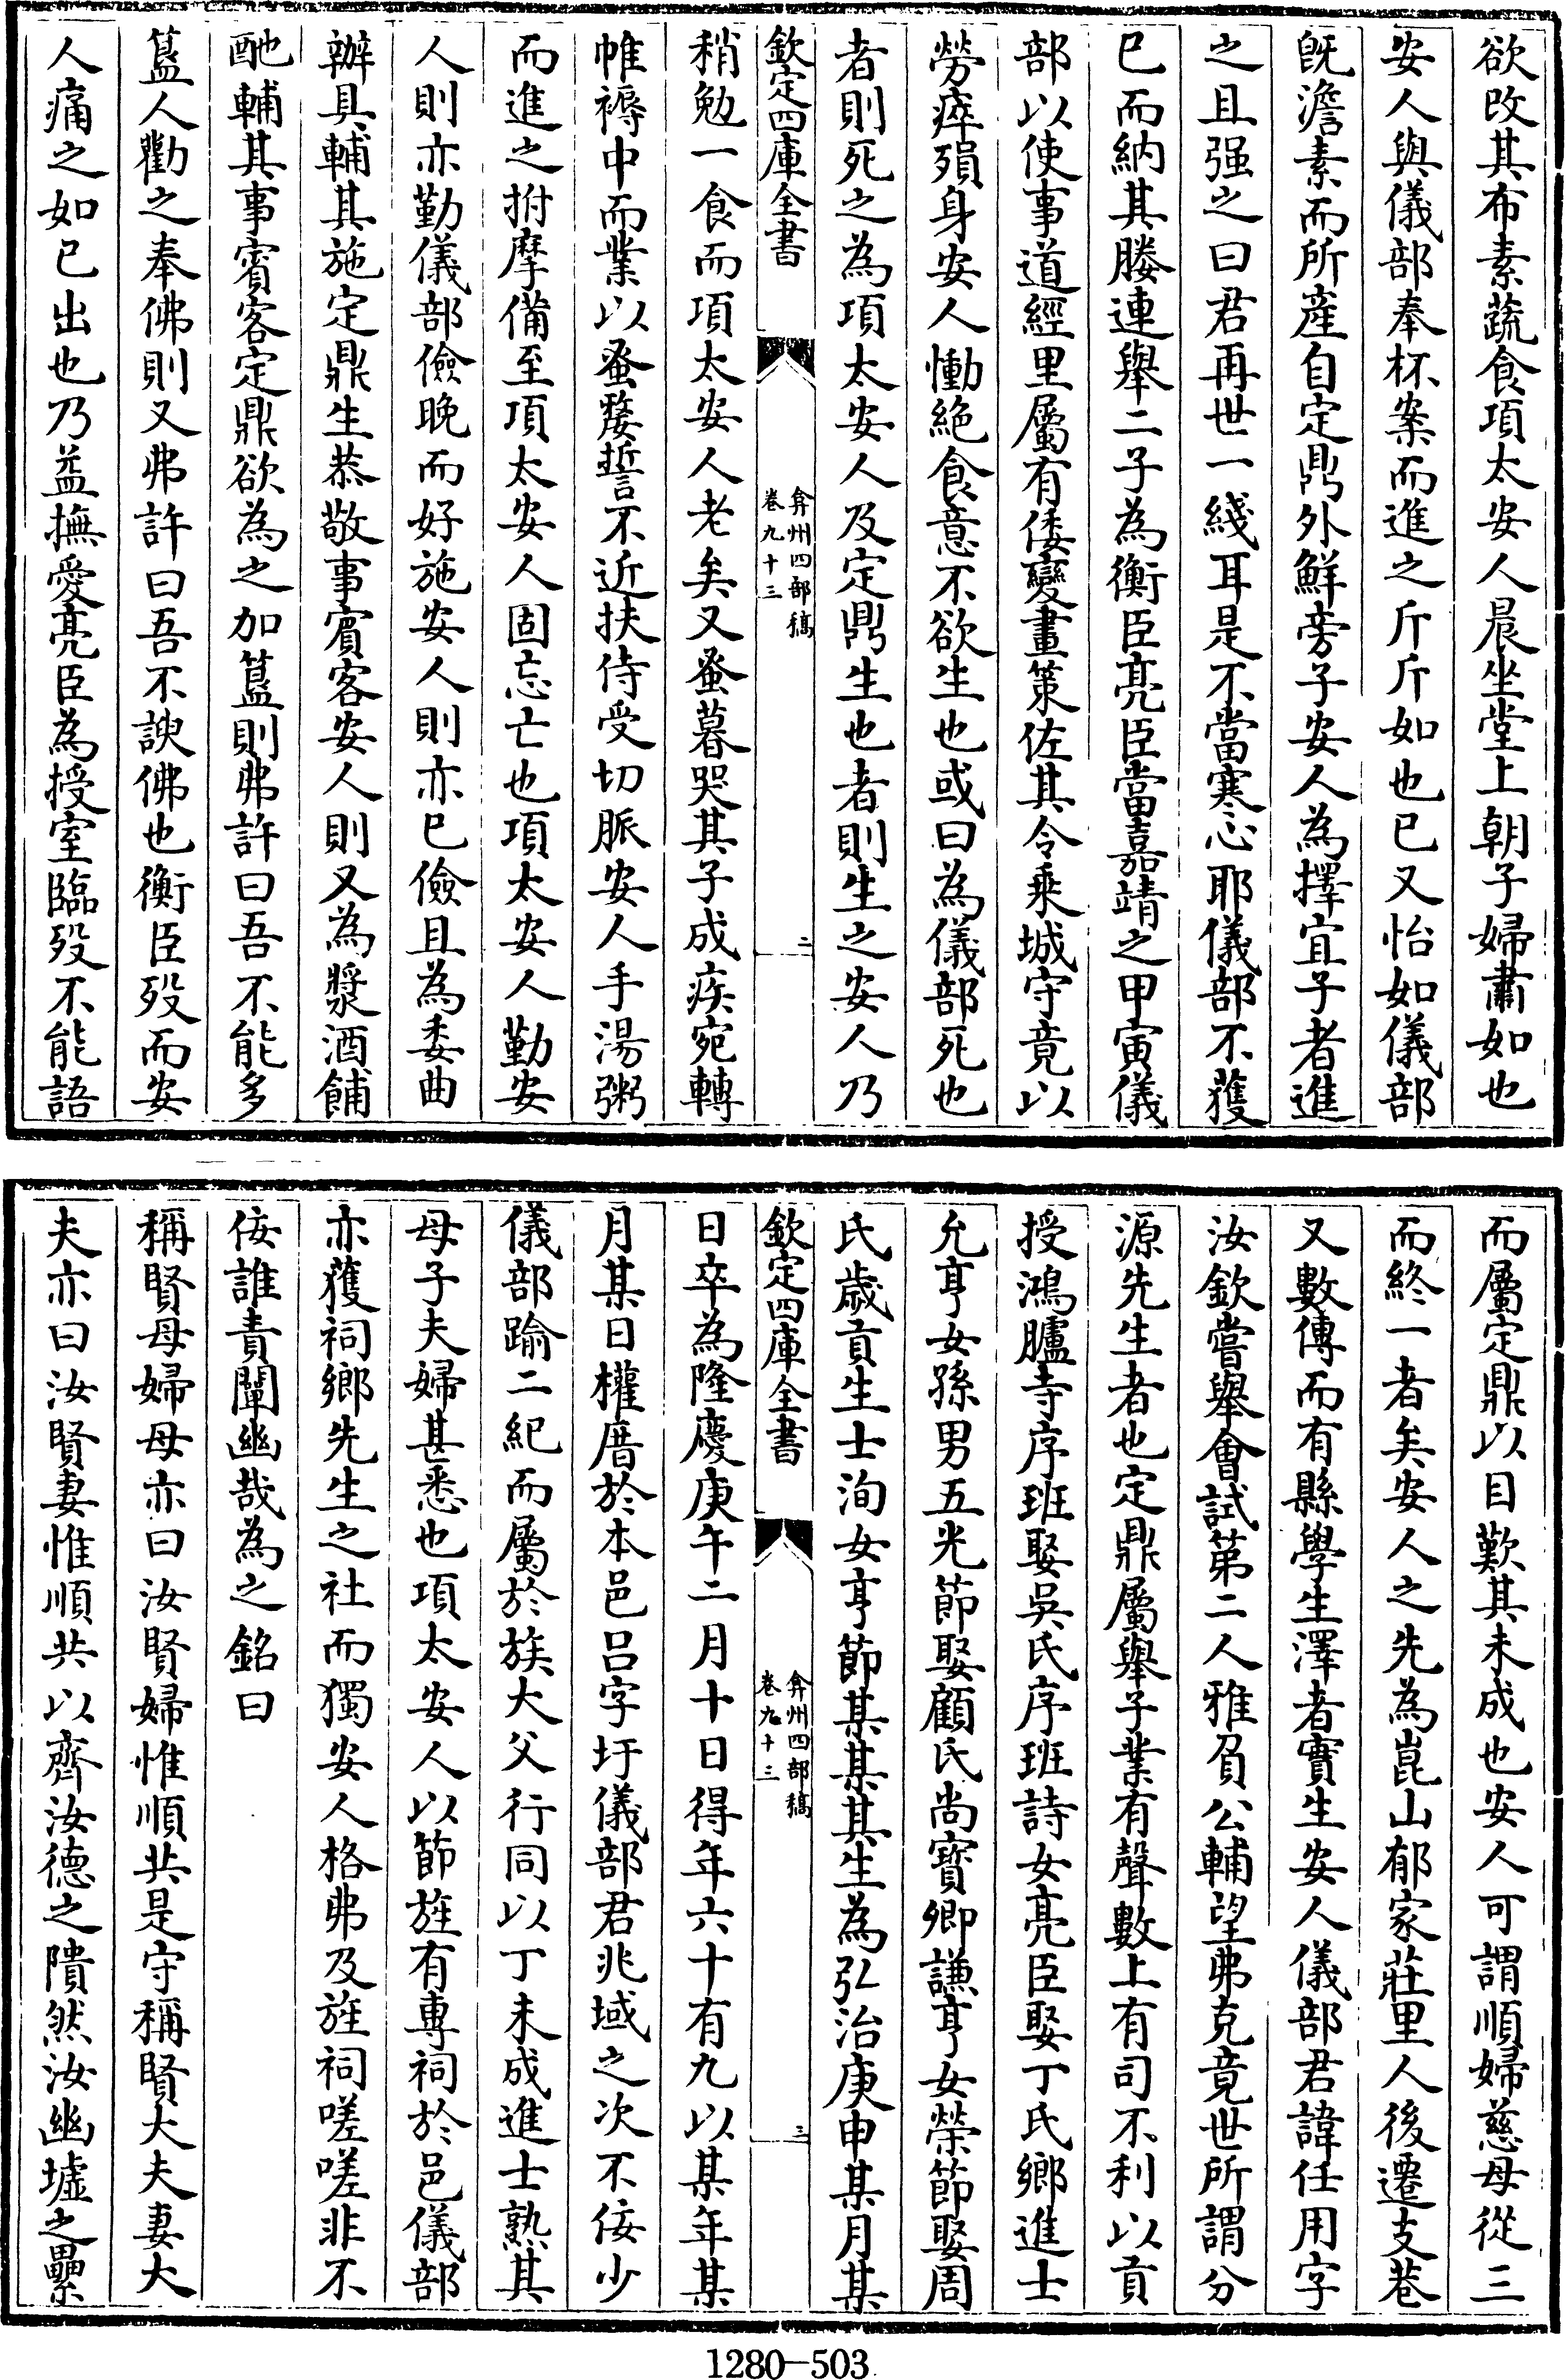 欲改其布素蔬食項太安人晨坐堂上朝子婦肅如也
安人與儀部奉杯案而進之斤斤如也已又怡如儀部
既澹素而所産自定鼎外鮮旁子安人為擇宜子者進
之且强之曰君再世一綫耳是不當寒心耶儀部不獲
已而納其媵連舉二子為衡臣亮臣當嘉靖之甲寅儀
部以使事道經里屬有倭變畫策佐其令乘城守竟以
勞瘁殞身安人慟絶食意不欲生也或曰為儀部死也
者則死之為項太安人及定鼎生也者則生之安人乃
欽定四庫全書
弇州四部稿
卷九十三
二
稍勉一食而項太安人老矣又蚤暮哭其子成疾宛轉
帷褥中而業以蚤嫠誓不近扶侍受切脈安人手湯粥
而進之拊摩備至項太安人固忘亡也項太安人勤安
人則亦勤儀部儉晚而好施安人則亦已儉且為委曲
辦具輔其施定鼎生恭敬事賓客安人則又為漿酒餔
酏輔其事賓客定鼎欲為之加簋則弗許曰吾不能多
簋人勸之奉佛則又弗許曰吾不諛佛也衡臣歿而安
人痛之如已出也乃益撫愛亮臣為授室臨歿不能語
而屬定鼎以目歎其未成也安人可謂順婦慈母從三
而終一者矣安人之先為崑山郁家莊里人後遷支巷
又數傳而有縣學生澤者實生安人儀部君諱任用字
汝欽嘗舉會試第二人雅負公輔望弗克竟世所謂分
源先生者也定鼎屬舉子業有聲數上有司不利以貢
授鴻臚寺序班娶吳氏序班詩女亮臣娶丁氏鄉進士
允亨女孫男五光節娶顧氏尚寳卿謙亨女榮節娶周
氏歲貢生士洵女亨節某某其生為弘治庚申某月某
欽定四庫全書
弇州四部稿
卷九十三
三
日卒為隆慶庚午二月十日得年六十有九以某年某
月某日權厝於本邑呂字圩儀部君兆域之次不佞少
儀部踰二紀而屬於族大父行同以丁未成進士熟其
母子夫婦甚悉也項太安人以節旌有專祠於邑儀部
亦獲祠鄉先生之社而獨安人格弗及旌祠嗟嗟非不
佞誰責闡幽哉為之銘曰
稱賢母婦母亦曰汝賢婦惟順共是守稱賢大夫妻大
夫亦曰汝賢妻惟順共以齊汝德之隤然汝幽墟之纍
1280—503